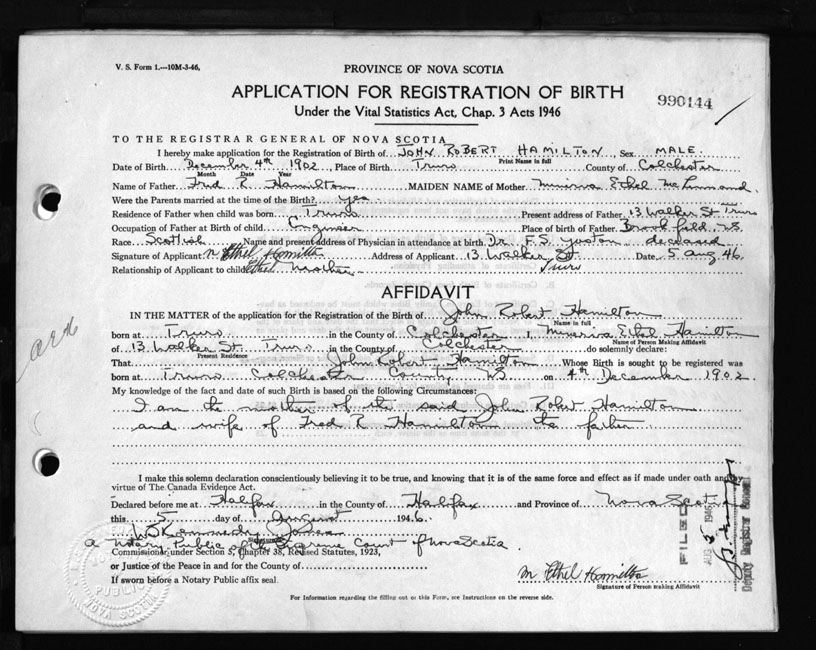 V. S. Form 1.—10M-3-46.
PROVINCE OF NOVA SCOTIA
APPLICATION FOR REGISTRATION OF BIRTH
990144
Under the Vital Statistics Act, Chap. 3 Acts 1946
TO THE REGISTRAR GENERAL OF NOVA SCOTIA
I hereby make application for the Registration of Birth of JOHN ROBERT HAMILTON, Sex MALE.
Print Name in full
Date of Birth December 4th 1902, Place of Birth Truro County of Colchester
Month Date Year
Name of Father Fred R. Hamilton MAIDEN NAME of Mother Minerva Ethel
Were the Parents married at the time of the Birth? yes
Residence of Father when child was born Truro Present address of Father 13 Walker St Truro
Occupation of Father at Birth of child Engineer Place of birth of Father Brookfield NS
Race Scottish Name and present address of Physician in attendance at birth Dr. F. S. deceased
Signature of Applicant M Ethel Hamilton Address of Applicant 13 Walker St Truro Date 5 Aug 46
Relationship of Applicant to child Mother
AFFIDAVIT
IN THE MATTER of the application for the Registration of the Birth of John Robert Hamilton
Name in full
born at Truro in the County of Colchester I, Minerva Ethel Hamilton
Name of Person Making Affidavit
of 13 Walker St. Truro in the County of Colchester do solemnly declare:
Present Residence
That John Robert Hamilton Whose Birth is sought to be registered was
born at Truro Colchester County NS on 4th December 1902.
My knowledge of the fact and date of such Birth is based on the following Circumstances:
I am the mother of the said John Robert Hamilton
and wife of Fred R. Hamilton the father
I make this solemn declaration conscientiously believing it to be true, and knowing that it is of the same force and effect as if made under oath and by
virtue of The Canada Evidence Act.
Declared before me at Halifax in the County of Halifax and Province of Nova Scotia
this 5 day of August 1946.
W S Kennedy Jones
a Notary Public of the Supreme Court of Nova Scotia
Commissioner under Section 5, Chapter 38, Revised Statutes, 1923,
or Justice of the Peace in and for the County of
If sworn before a Notary Public affix seal.
M Ethel Hamilton
Signature of Person making Affidavit
For Information regarding the filling out of this Form, see Instructions on the reverse side.
FILED
AUG 5 1946
Deputy Registrar General
PUBLIC
NOVA SCOTIA